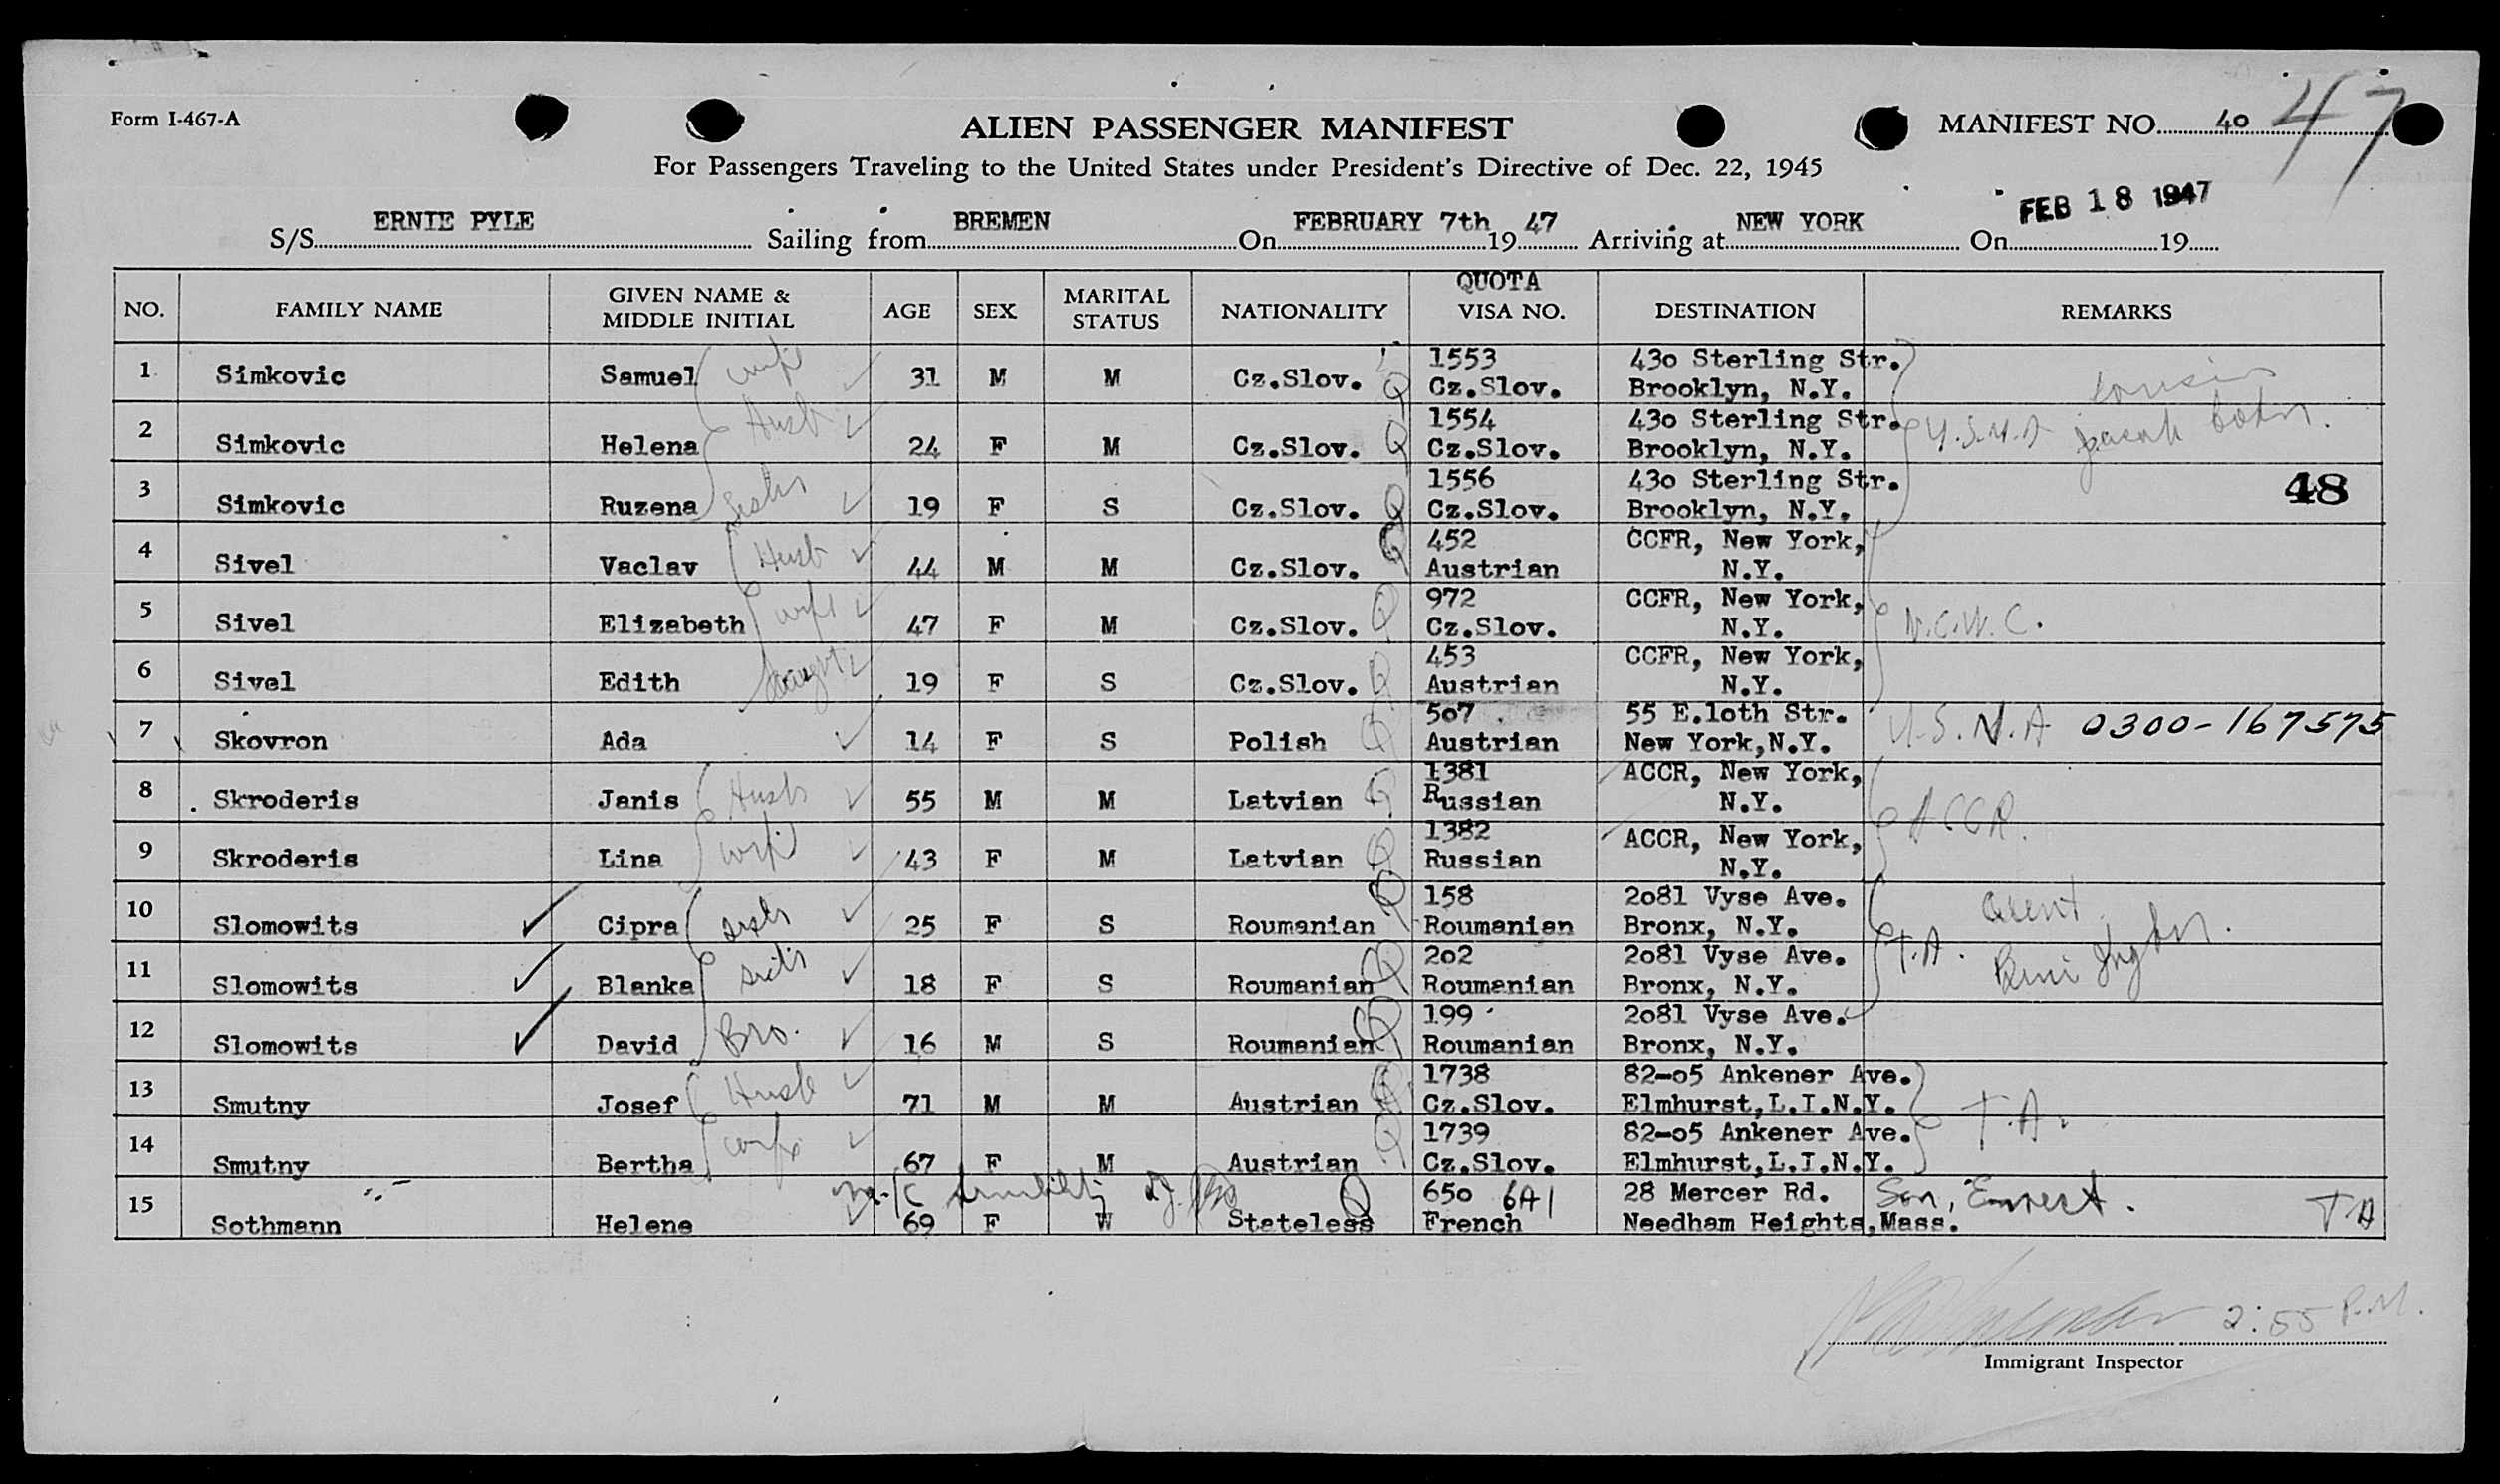 Form I-467-A
ALIEN PASSENGER MANIFEST
MANIFEST NO. 40 47
For Passengers Traveling to the United States under President's Directive of Dec. 22, 1945
FEB 18 1947
S/S ERNIE PYLE Sailing from BREMEN On FEBRUARY 7th 19 47 Arriving at NEW YORK On 19
NO. FAMILY NAME GIVEN NAME & MIDDLE INITIAL AGE SEX MARITAL STATUS NATIONALITY QUOTA VISA NO. DESTINATION REMARKS
1 Simkovic Samuel wife 31 M M Cz.Slov. Q 1553 Cz.Slov. 430 Sterling Str. Brooklyn, N.Y. cousin
2 Simkovic Helena Husb 24 F M Cz.Slov. Q 1554 Cz.Slov. 430 Sterling Str. Brooklyn, N.Y.
3 Simkovic Ruzena sister 19 F S Cz.Slov. Q 1556 Cz.Slov. 430 Sterling Str. Brooklyn, N.Y. 48
4 Sivel Vaclav Husb 44 M M Cz.Slov. Q 452 Austrian CCFR, New York, N.Y.
5 Sivel Elizabeth wife 47 F M Cz.Slov. Q 972 Cz.Slov. CCFR, New York, N.Y. N.C.W.C.
6 Sivel Edith daught 19 F S Cz.Slov. Q 453 Austrian CCFR, New York, N.Y.
7 Skovron Ada 14 F S Polish Q 507 Austrian 55 E.loth Str. New York,N.Y. U.S.N.A 0300-167575
8 Skroderis Janis Husb 55 M M Latvian Q 1381 Russian ACCR, New York, N.Y. ACCR.
9 Skroderis Lina wife 43 F M Latvian Q 1382 Russian ACCR, New York, N.Y.
10 Slomowits Cipra 25 F S Roumanian Q 158 Roumanian 2081 Vyse Ave. Bronx, N.Y.
11 Slomowits Blanka 18 F S Roumanian Q 202 Roumanian 2081 Vyse Ave. Bronx, N.Y. T.A.
12 Slomowits David Bro. 16 M S Roumanian Q 199 Roumanian 2081 Vyse Ave. Bronx, N.Y.
13 Smutny Josef Husb 71 M M Austrian Q 1738 Cz.Slov. 82-05 Ankener Ave. Elmhurst,L.I.N.Y. T.A.
14 Smutny Bertha wife 67 F M Austrian Q 1739 Cz.Slov. 82-05 Ankener Ave. Elmhurst,L.I.N.Y.
15 Sothmann Helene 69 F W Stateless Q 650 6A1 French 28 Mercer Rd. Needham Heights,Mass. Son, Ernest. T A
2:55 P.M.
Immigrant Inspector